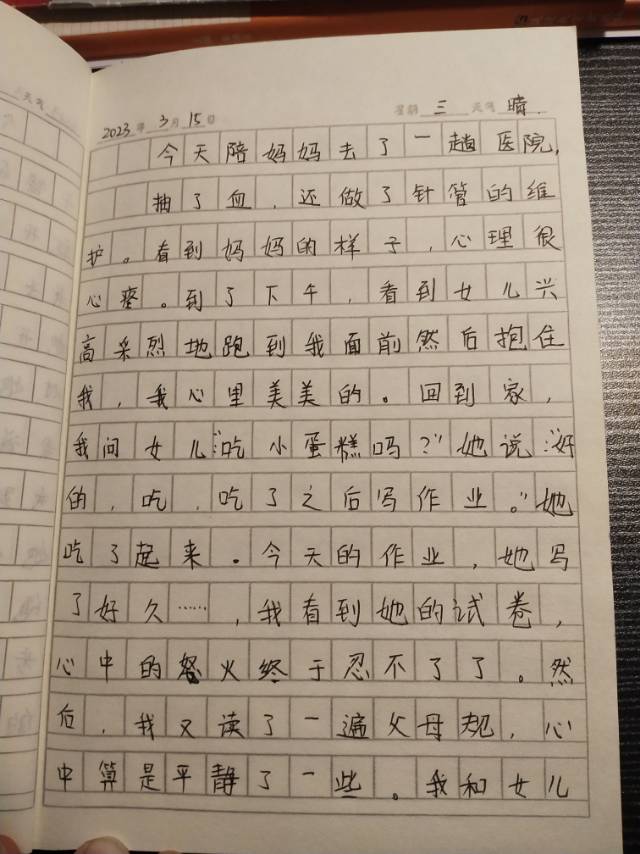 2023年3月15日 星期三 天气晴.
今天陪妈妈去了一趟医院,
抽了血,还做了针管的维
护。看到妈妈的样子,心理很
心疼。到了下午,看到女儿兴
高采烈地跑到我面前然后抱住
我,我心里美美的。回到家,
我问女儿:"吃小蛋糕吗?"她说:"好
的,吃,吃了之后写作业。"她
吃了起来。今天的作业,她写
了好久……,我看到她的试卷,
心中的怒火终于忍不了了。然
后,我又读了一遍父母规,心
中算是平静了一些。我和女儿
天气